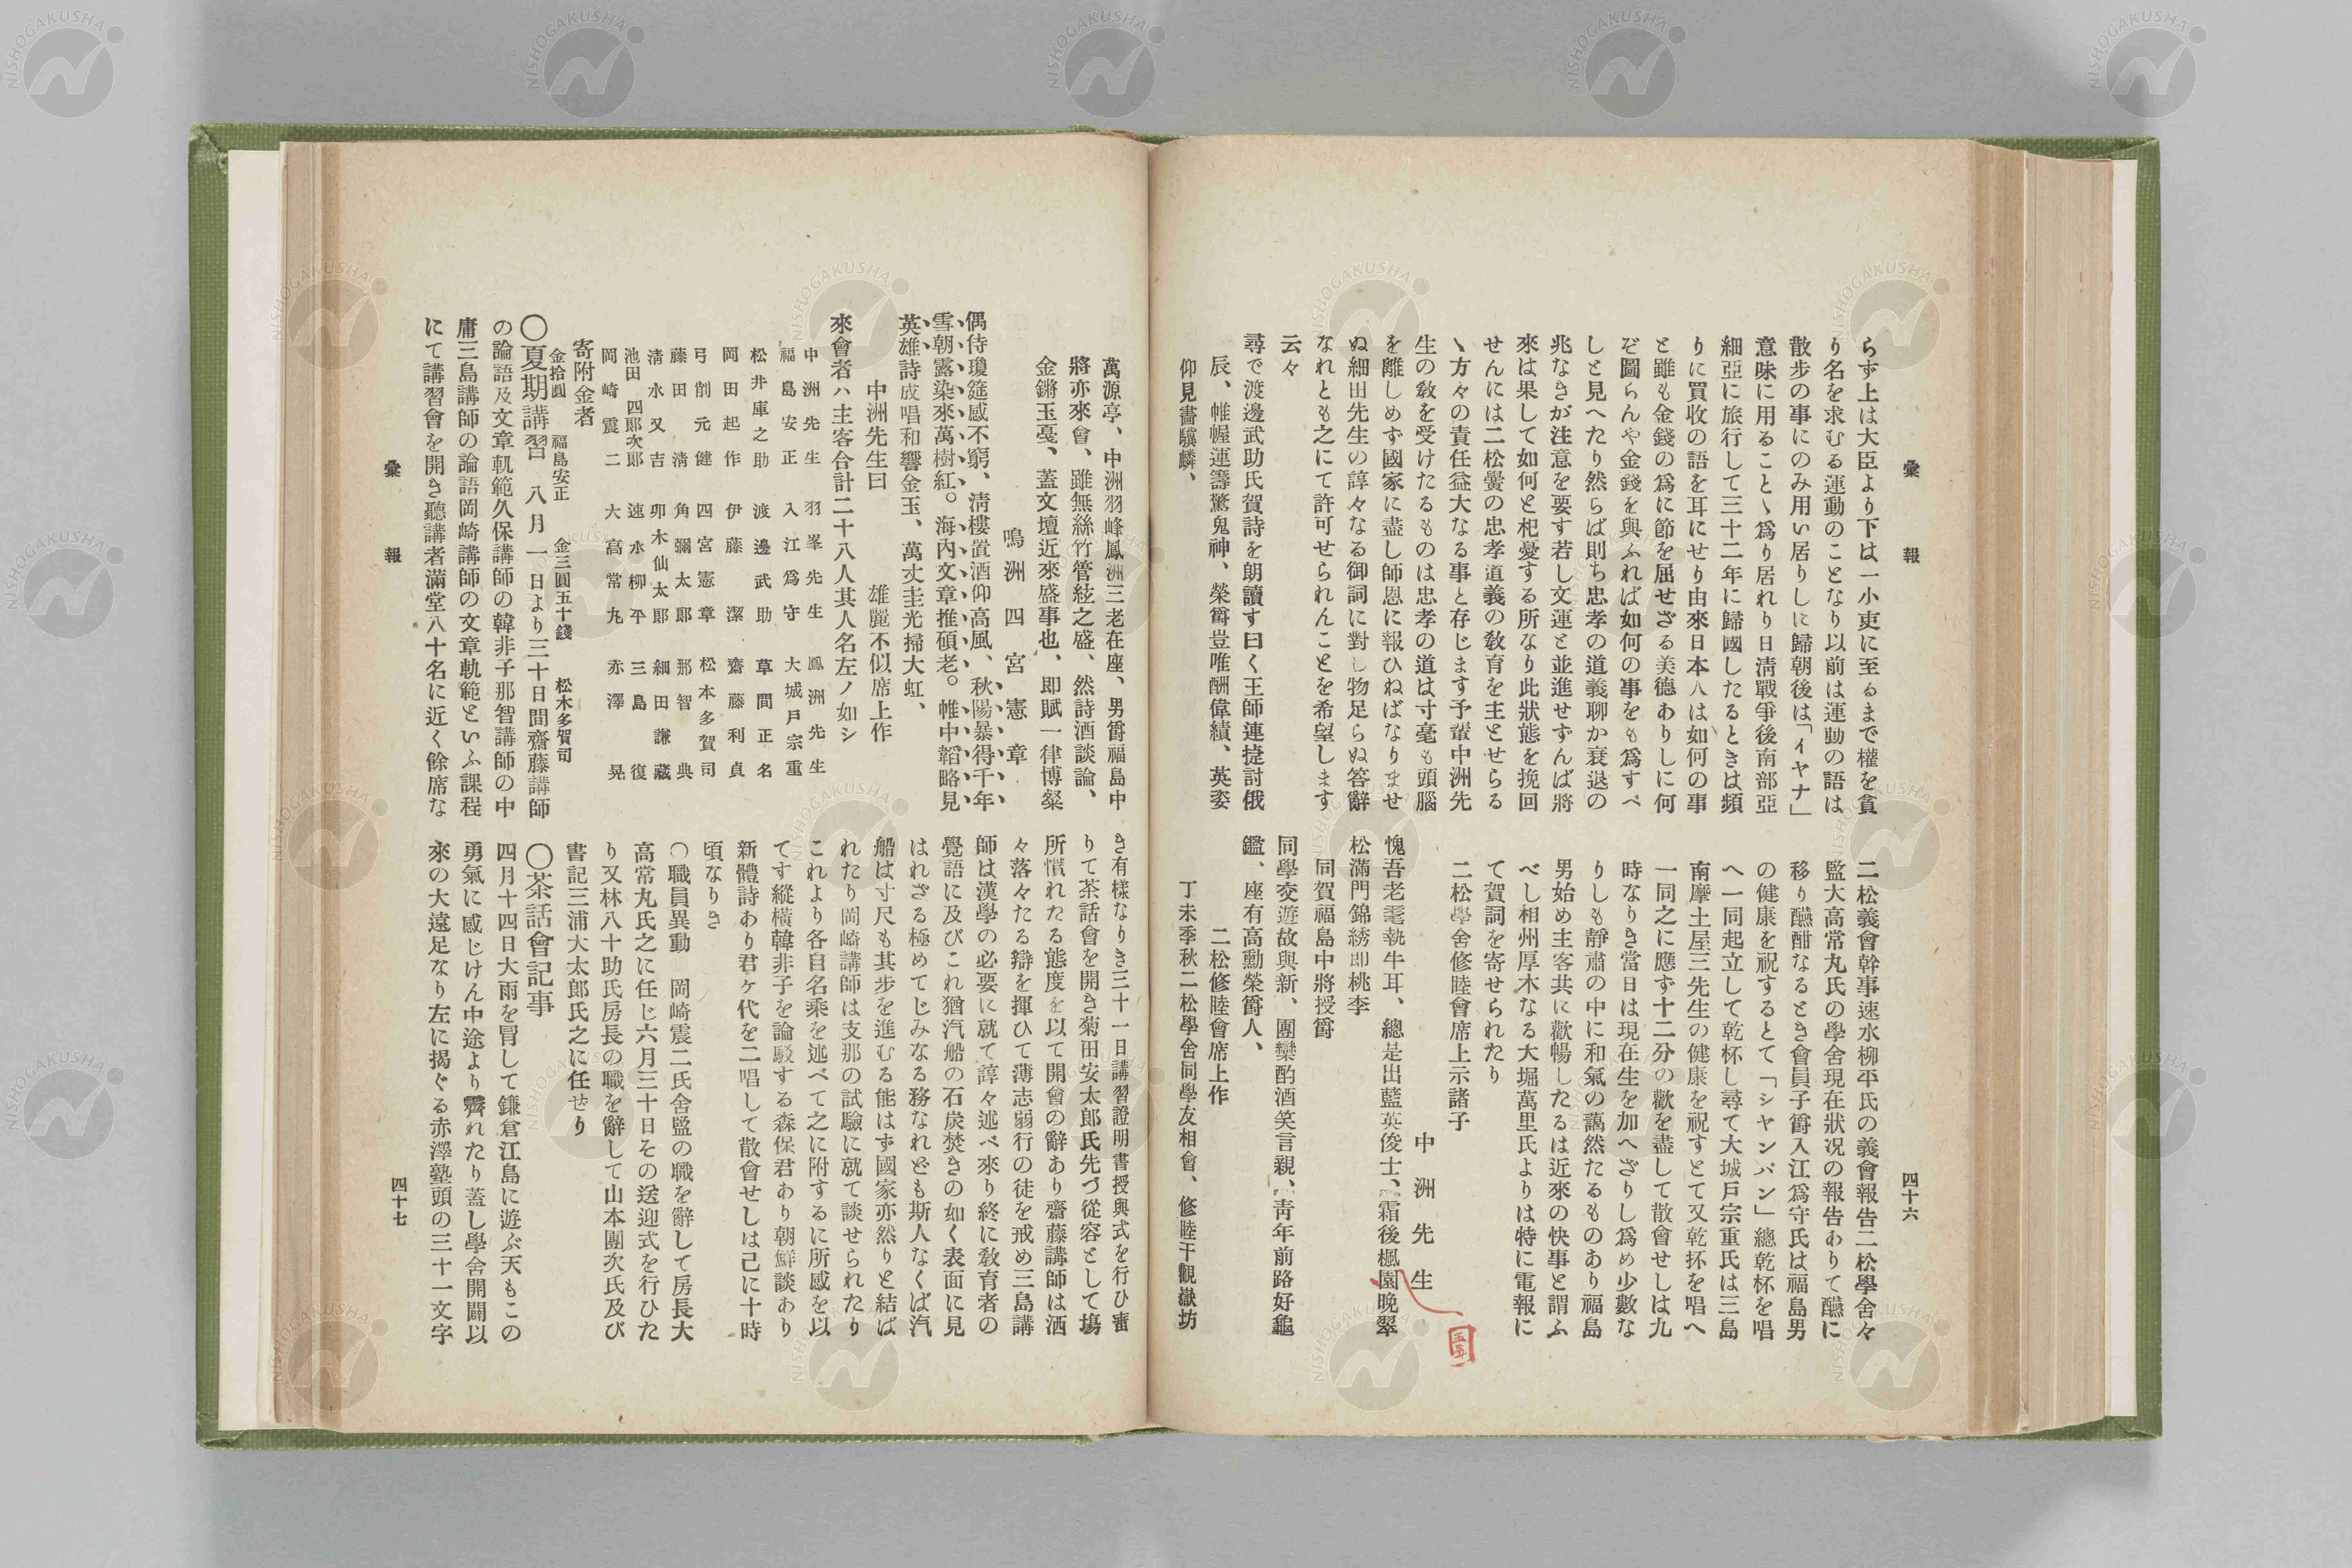 彙報
四十六
らず上は大臣より下は一小吏に至るまで權を貪
り名を求むる運動のことなり以前は運動の語は
散歩の事にのみ用い居りしに歸朝後は「イヤナ」
意味に用ること丶爲り居れり日淸戰爭後南部亞
細亞に旅行して三十二年に歸國したるときは頻
りに買收の語を耳にせり由來日本人は如何の事
と雖も金錢の爲に節を屈せざる美德ありしに何
ぞ圖らんや金錢を與ふれば如何の事をも爲すべ
しと見へたり然らば則ち忠孝の道義聊か衰退の
兆なきが注意を要す若し文運と並進せずんば將
來は果して如何と杞憂する所なり此狀態を挽回
せんには二松黌の忠孝道義の敎育を主とせらる
丶方々の責任益大なる事と存じます予輩中洲先
生の敎を受けたるものは忠孝の道は寸毫も頭腦
を離しめず國家に盡し師恩に報ひねばなりませ
ぬ細田先生の諄々なる御詞に對し物足らぬ答辭
なれとも之にて許可せられんことを希望します
云々
尋で渡邊武助氏賀詩を朗讀す曰く王師連捷討俄
辰、帷幄運籌驚鬼神、榮爵豈唯酬偉績、英姿
仰見畵驥麟、
二松義會幹事速水柳平氏の義會報告二松學舍々
監大高常丸氏の學舍現在狀况の報告ありて醼に
移り醼酣なるとき會員子爵入江爲守氏は福島男
の健康を祝するとて「シヤンパン」總乾杯を唱
へ一同起立して乾杯し尋て大城戶宗重氏は三島
南摩土屋三先生の健康を祝すとて又乾杯を唱へ
一同之に應ず十二分の歡を盡して散會せしは九
時なりき當日は現在生を加へざりし爲め少數な
りしも靜肅の中に和氣の藹然たるものあり福島
男始め主客共に歡暢したるは近來の快事と謂ふ
べし相州厚木なる大堀萬里氏よりは特に電報に
て賀詞を寄せられたり
二松學舍修睦會席上示諸子
中洲先生
愧吾老耄執牛耳、總是出藍英俊士、霜後楓園晚翠
松滿門錦綉即桃李
同賀福島中將授爵
同學交遊故與新、團欒酌酒笑言親、靑年前路好龜
鑑、座有高勳榮爵人、
二松修睦會席上作
丁未季秋二松學舍同學友相會、修睦于觀嶽坊
萬源亭、中洲羽峰鳳洲三老在座、男爵福島中
將亦來會、雖無絲竹管絃之盛、然詩酒談論、
金鏘玉戞、蓋文壇近來盛事也、即賦一律博粲
鳴洲四宮憲章
偶侍瓊筵感不窮、淸樓置酒仰高風、秋陽暴得千年
雪朝露染來萬樹紅。海內文章推碩老。帷中韜略見
英雄詩成唱和響金玉、萬丈圭光掃大虹、
中洲先生曰　雄麗不似席上作
來會者ハ主客合計二十八人其人名左ノ如シ
中洲先生　羽峯先生　鳳洲先生
福島安正　入江爲守　大城戶宗重
松井庫之助　渡邊武助　草間正名
岡田起作　伊藤潔　齋藤利貞
弓削元健　四宮憲章　松本多賀司
藤田淸　角彌太郞　那智典
淸水又吉　卯木仙太郞　細田謙藏
池田四郞次郞　速水柳平　三島復
岡崎震二　大高常丸　赤澤晃
寄附金者
金拾圓　福島安正　金三圓五十錢　松木多賀司
〇夏期講習　八月一日より三十日間齋藤講師
の論語及文章軌範久保講師の韓非子那智講師の中
庸三島講師の論語岡崎講師の文章軌範といふ課程
にて講習會を開き聽講者滿堂八十名に近く餘席な
き有樣なりき三十一日講習證明書授與式を行ひ畜
りて茶話會を開き菊田安太郎氏先づ從容として塲
所慣れたる態度を以て開會の辭あり齋藤講師は洒
々落々たる辯を揮ひて薄志弱行の徒を戒め三島講
師は漢學の必要に就て諄々述べ來り終に敎育者の
覺語に及びこれ猶汽船の石炭焚きの如く表面に見
はれざる極めてじみなる務なれども斯人なくば汽
船は寸尺も其步を進むる能はず國家亦然りと結ば
れたり岡崎講師は支那の試驗に就て談せられたり
これより各自名乘を述べて之に附するに所感を以
てす縱橫韓非子を論駁する森保君あり朝鮮談あり
新體詩あり君ヶ代を二唱して散會せしは己に十時
頃なりき
〇職員異動　岡崎震二氏舍監の職を辭して房長大
高常丸氏之に任じ六月三十日その送迎式を行ひた
り又林八十助氏房長の職を辭して山本團次氏及び
書記三浦大太郎氏之に任せり
〇茶話會記事
四月十四日大雨を冒して鎌倉江島に遊ぶ天もこの
勇氣に感じけん中途より霽れたり蓋し學舍開闢以
來の大遠足なり左に揭ぐる赤澤塾頭の三十一文字
彙報
四十七